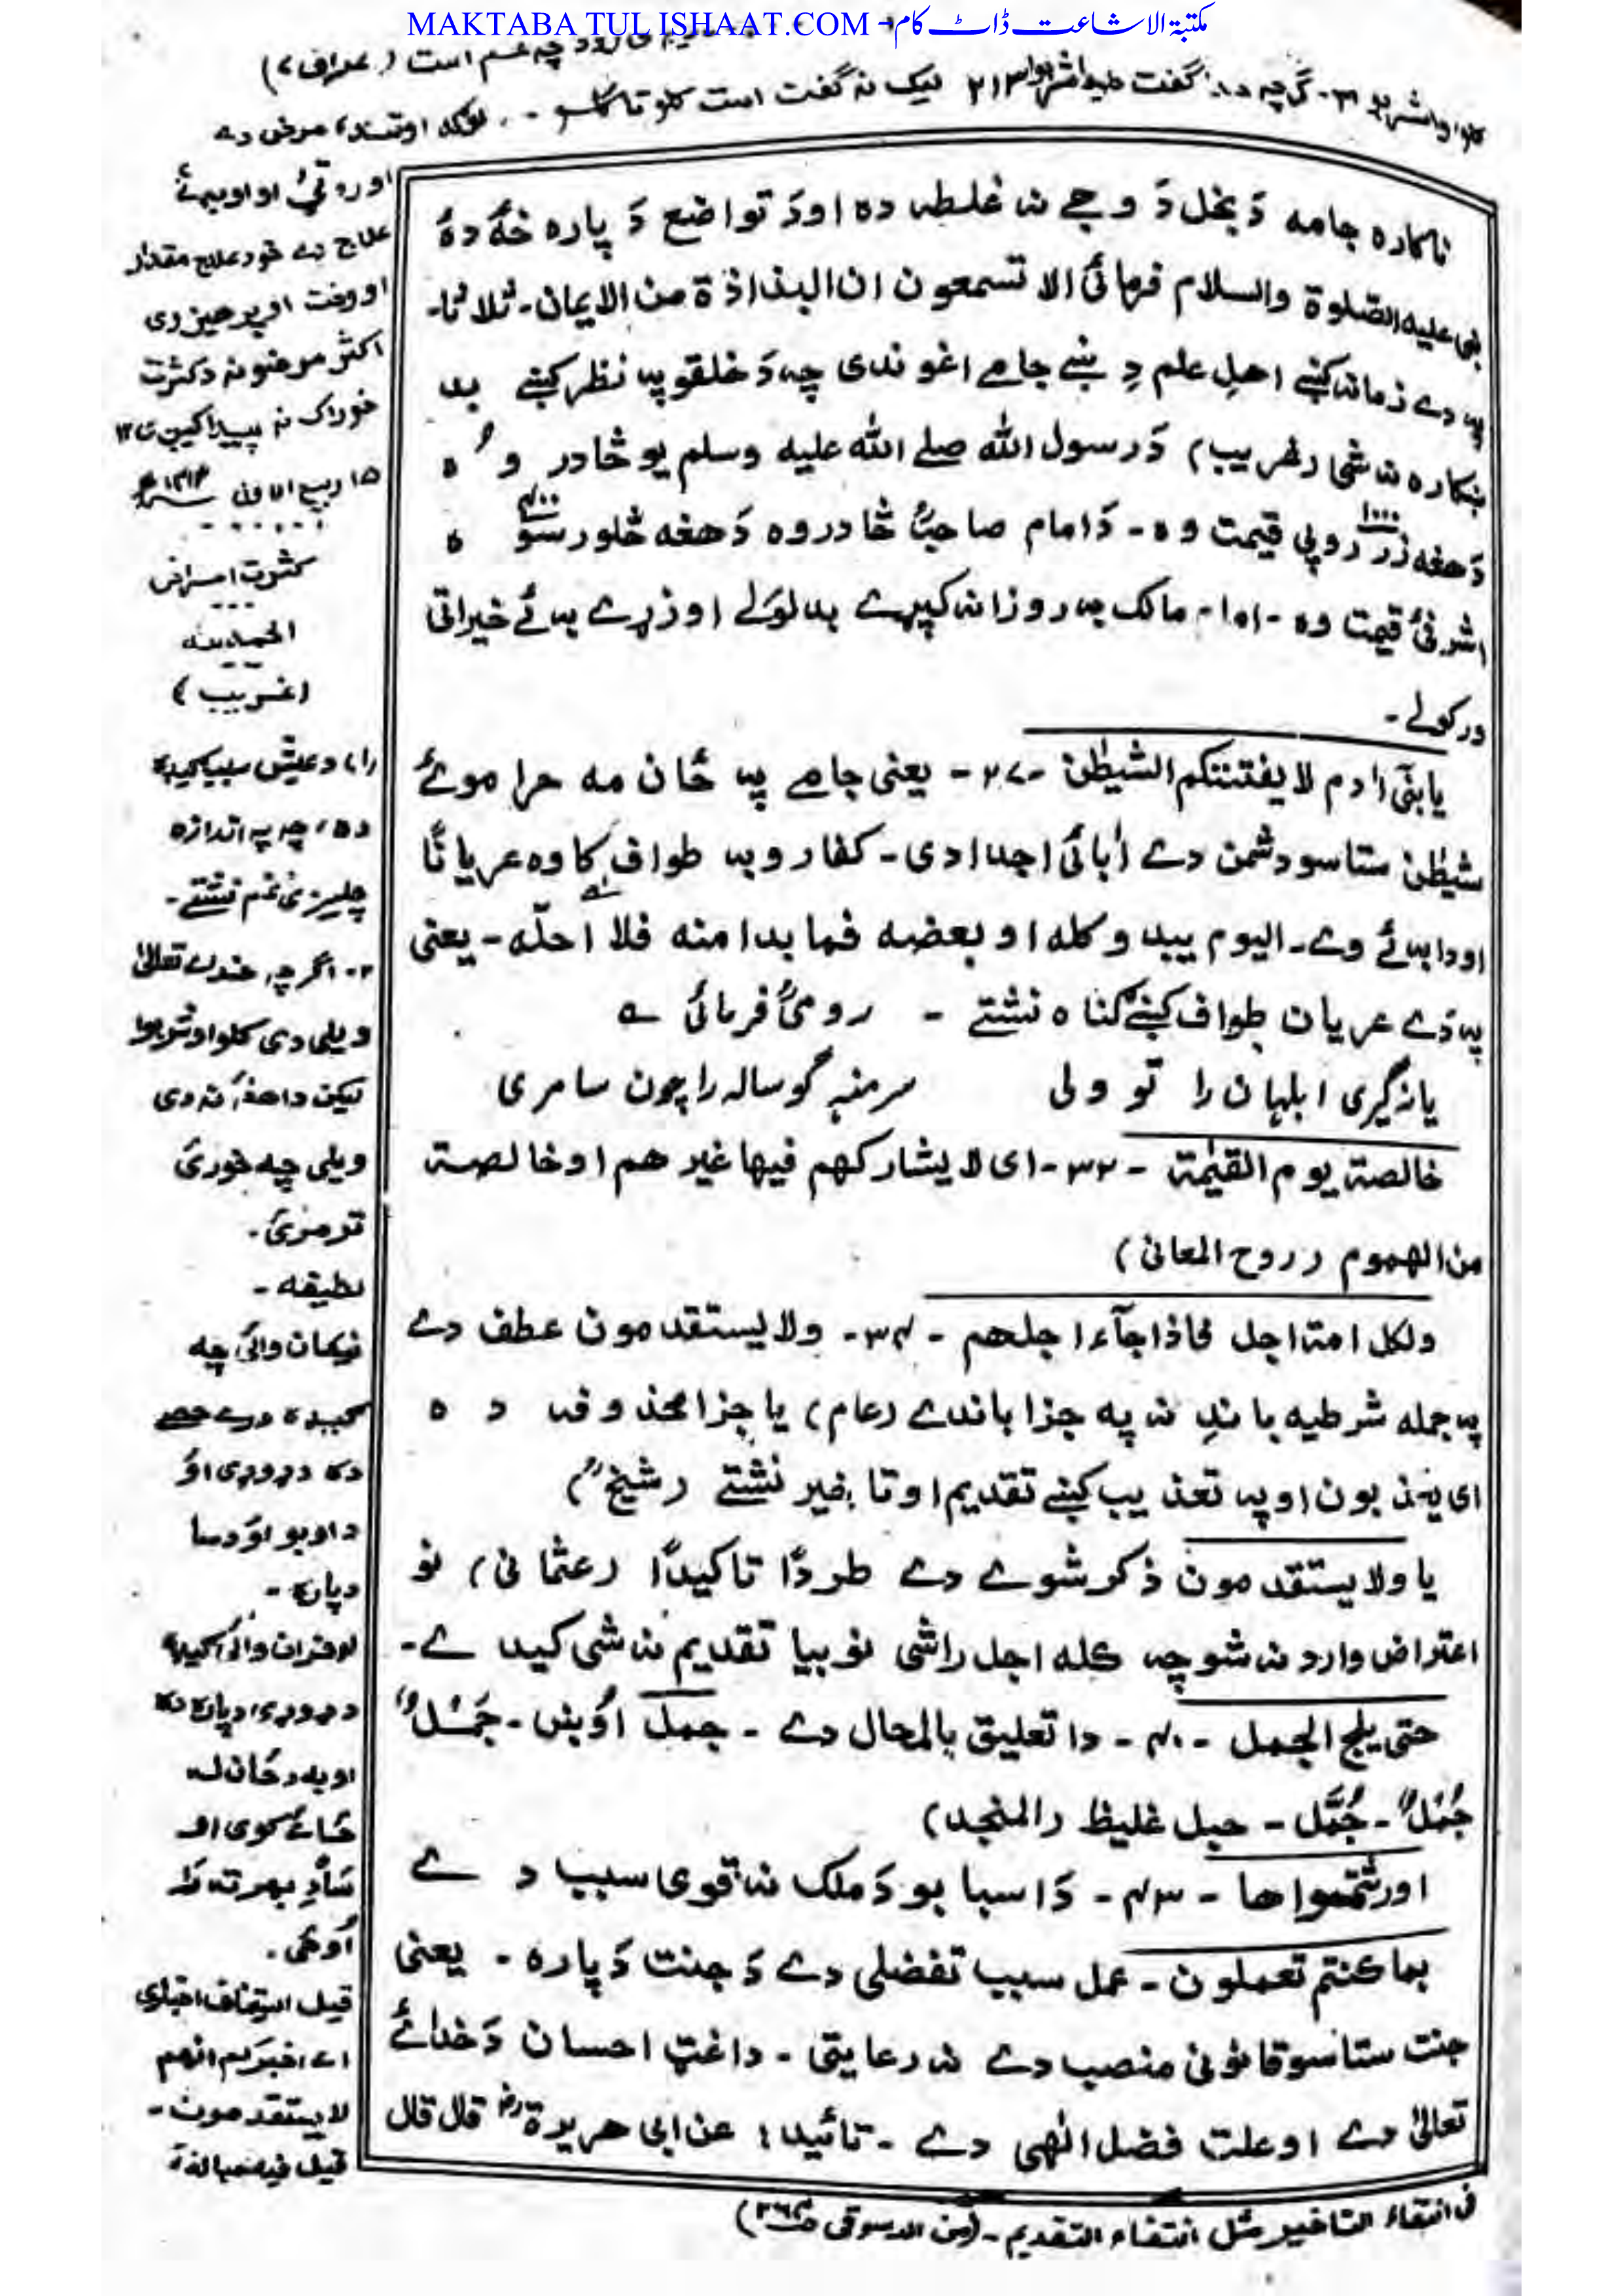 MAKTABA TUL ISHAAT.COM - مکتبۃ الاشاعت ڈاٹ کام
چہ غم است (اعراف ۷)
گفت کلوا واشربوا ۳۱۲ لیک نہ گفت است کلوا تا گلو
ناکارہ جامہ دَ بخل دَ وجے نہ غلطہ دہ او دَ تواضع دَ پارہ ښۂ دہ
نبی علیہ الصلوۃ والسلام فرمائی الا تسمعون ان البذاذۃ من الایمان۔ ثلاثا۔
پہ دے زمانہ کښے اهل علم دِ ښے جامے اغوندی چہ دَ خلقو پہ نظر کښے بد
ښکارہ نہ شی (غریب) دَ رسول اللہ صلے اللہ علیہ وسلم یو څادر وُ ہ
دَ هغہ زر ۱۰۰۰ روپی قیمت وہ۔ دَ امام صاحبؒ څادر وہ دَ هغہ څلور سو ۴۰۰ ہ
اشرفئ قیمت وہ۔ ۱ہ۱۔ مالک بہ روزانہ کپړے بدلولے او زړے بہ ئے خیراتی
ورکولے۔
یابنی اٰدم لا یفتننکم الشیطٰن ۔۲۷۔ یعنی جامے پہ ځان مہ حراموئے
شیطٰن ستاسو دشمن دے اٰبائی اجدادی۔ کفارو بہ طواف کاوہ عریانًا
او دا بہ ئے وے۔ الیوم یبدو کلہ او بعضہ فما بدا منہ فلا احلّہ۔ یعنی
پہ دے عریان طواف کښے گناہ نشتے ۔ رومیؒ فرمائی ؎
یا نہ گیری ابلہان را تو ولی سر منہ گوسالہ را چون سامری
خالصۃ یوم القیٰمۃ ۔۳۲۔ ای لا یشارکهم فیها غیرهم او خالصۃ
من الهموم (روح المعانی)
ولکل امۃ اجل فاذا جآء اجلهم ۔۳۴۔ ولا یستقدمون عطف دے
پہ جملہ شرطیہ باندِ نہ پہ جزا باندے (عام) یا جزا محذوفہ دہ
ای یعذبون او پہ تعذیب کښے تقدیم او تاخیر نشتے (شیخؒ)
یا ولا یستقدمون ذکر شوے دے طردًا تاکیدًا (عثمانی) نو
اعتراض وارد نہ شو چہ کلہ اجل راشی نو بیا تقدیم نہ شی کیدے۔
حتی یلج الجمل ۔۴۰۔ دا تعلیق بالمحال دے ۔ جمل اُوښ۔ جَمْلٌ
جُمْلٌ۔ جُمَّل۔ حبل غلیظ (المنجد)
اورثتموا ها ۔ ۴۳۔ دَ اسبابو دَ ملک نہ قوی سبب دے
بما کنتم تعملون ۔ عمل سبب تفضلی دے دَ جنت دَ پارہ ۔ یعنی
جنت ستاسو قانونی منصب دے نہ رعایتی ۔ دا غټ احسان دَ خدائے
تعالیٰ دے او علت فضل الٰهی دے ۔ تائید: عن ابی هریرۃ رض قال قال
علاج دے خو د علاج مقدار
او وخت او پرهیز دی
اکثر مرضونہ د کثرت
خوراک نہ پیدا کیږی ۱۲
۱۵ ربیع الاول
کثرت امراض
الحمدیث
(غریب)
دہ، چہ پہ اندازہ
چلیږی غم نشتے۔
۲۔ اگرچہ خدائے تعالیٰ
ویلی دی کلوا واشربوا
لیکن دا هغہ نہ دی
ویلی چہ خورئ
تر مرئ۔
لطیفہ۔
د اوبو او د سا
دپارہ۔
اوبہ د ځان لہ
ځائے کوی او
ساہ بهر تہ
اُوځی۔
قیل استیناف اخباری
اے اخبرکم انهم
لا یستقدمون۔
قیل فیہ مبالغۃ
فی انتفاء التاخیر مثل انتفاء التقدیم۔ (من الدسوقی)